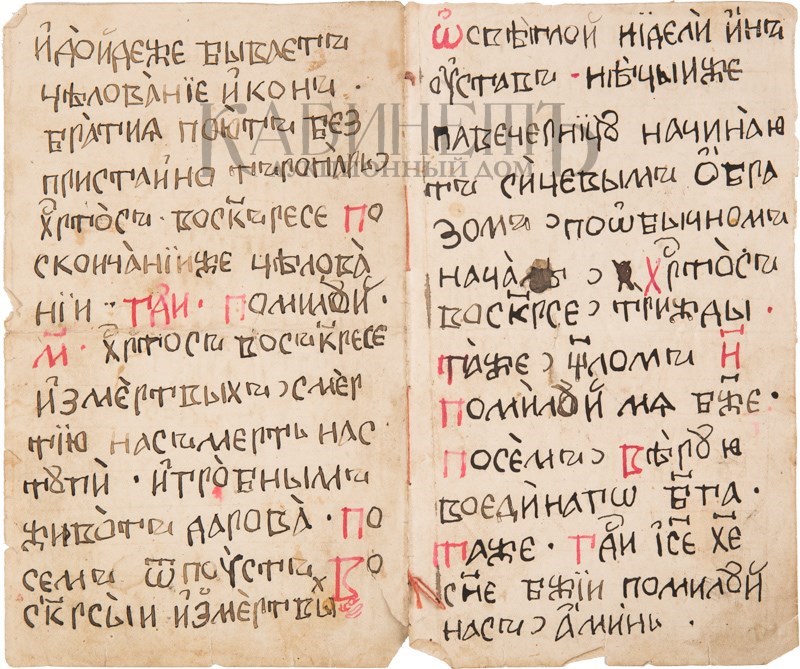 И҆ до́йдеже быва́етъ
цѣлова́нїе и҆конъ ·
бра́тия пою́тъ без
приста́нно търопа́рь ,
хрⷭто́съ · воскъ҃ресе по
сконча́нїиже цѣлова́
нїи · та҃и · поми́лꙋй ·
м҃ · хрⷭто́съ восък҃ресе
и҆зме́ртвыхъ , сме́р
тїю насъмерть нас
тꙋпи́ · и҆тро́бнымъ
живо́тъ дарова̀ · по
семъ ѿпꙋ́стъ Во
ск҃рсы́и и҆зме́ртвы
Ѿсвѣ́тлой нїде́ли и҆нъ
оу҆ставъ · нѣ́чыиже
павече́рницꙋ начина́ю
тъ си́чевымъ ѻ҆́бра
зомъ , поѡ҆бы́чномъ
нача́лѣ , хрⷭто́съ
воск҃рсе , три́жды ·
та́же , ѱ҃ломъ н҃
поми́лꙋй мѧ бж҃е ·
посе́мъ , вѣ́рꙋю
воеди́наго б҃га ·
та́же · та҃и і҆с҃е х҃е
сн҃е бж҃їи поми́лꙋй
насъ , а҆ми́нь ·
КАБИНЕТЪ
АУКЦИОННЫЙ ДОМ